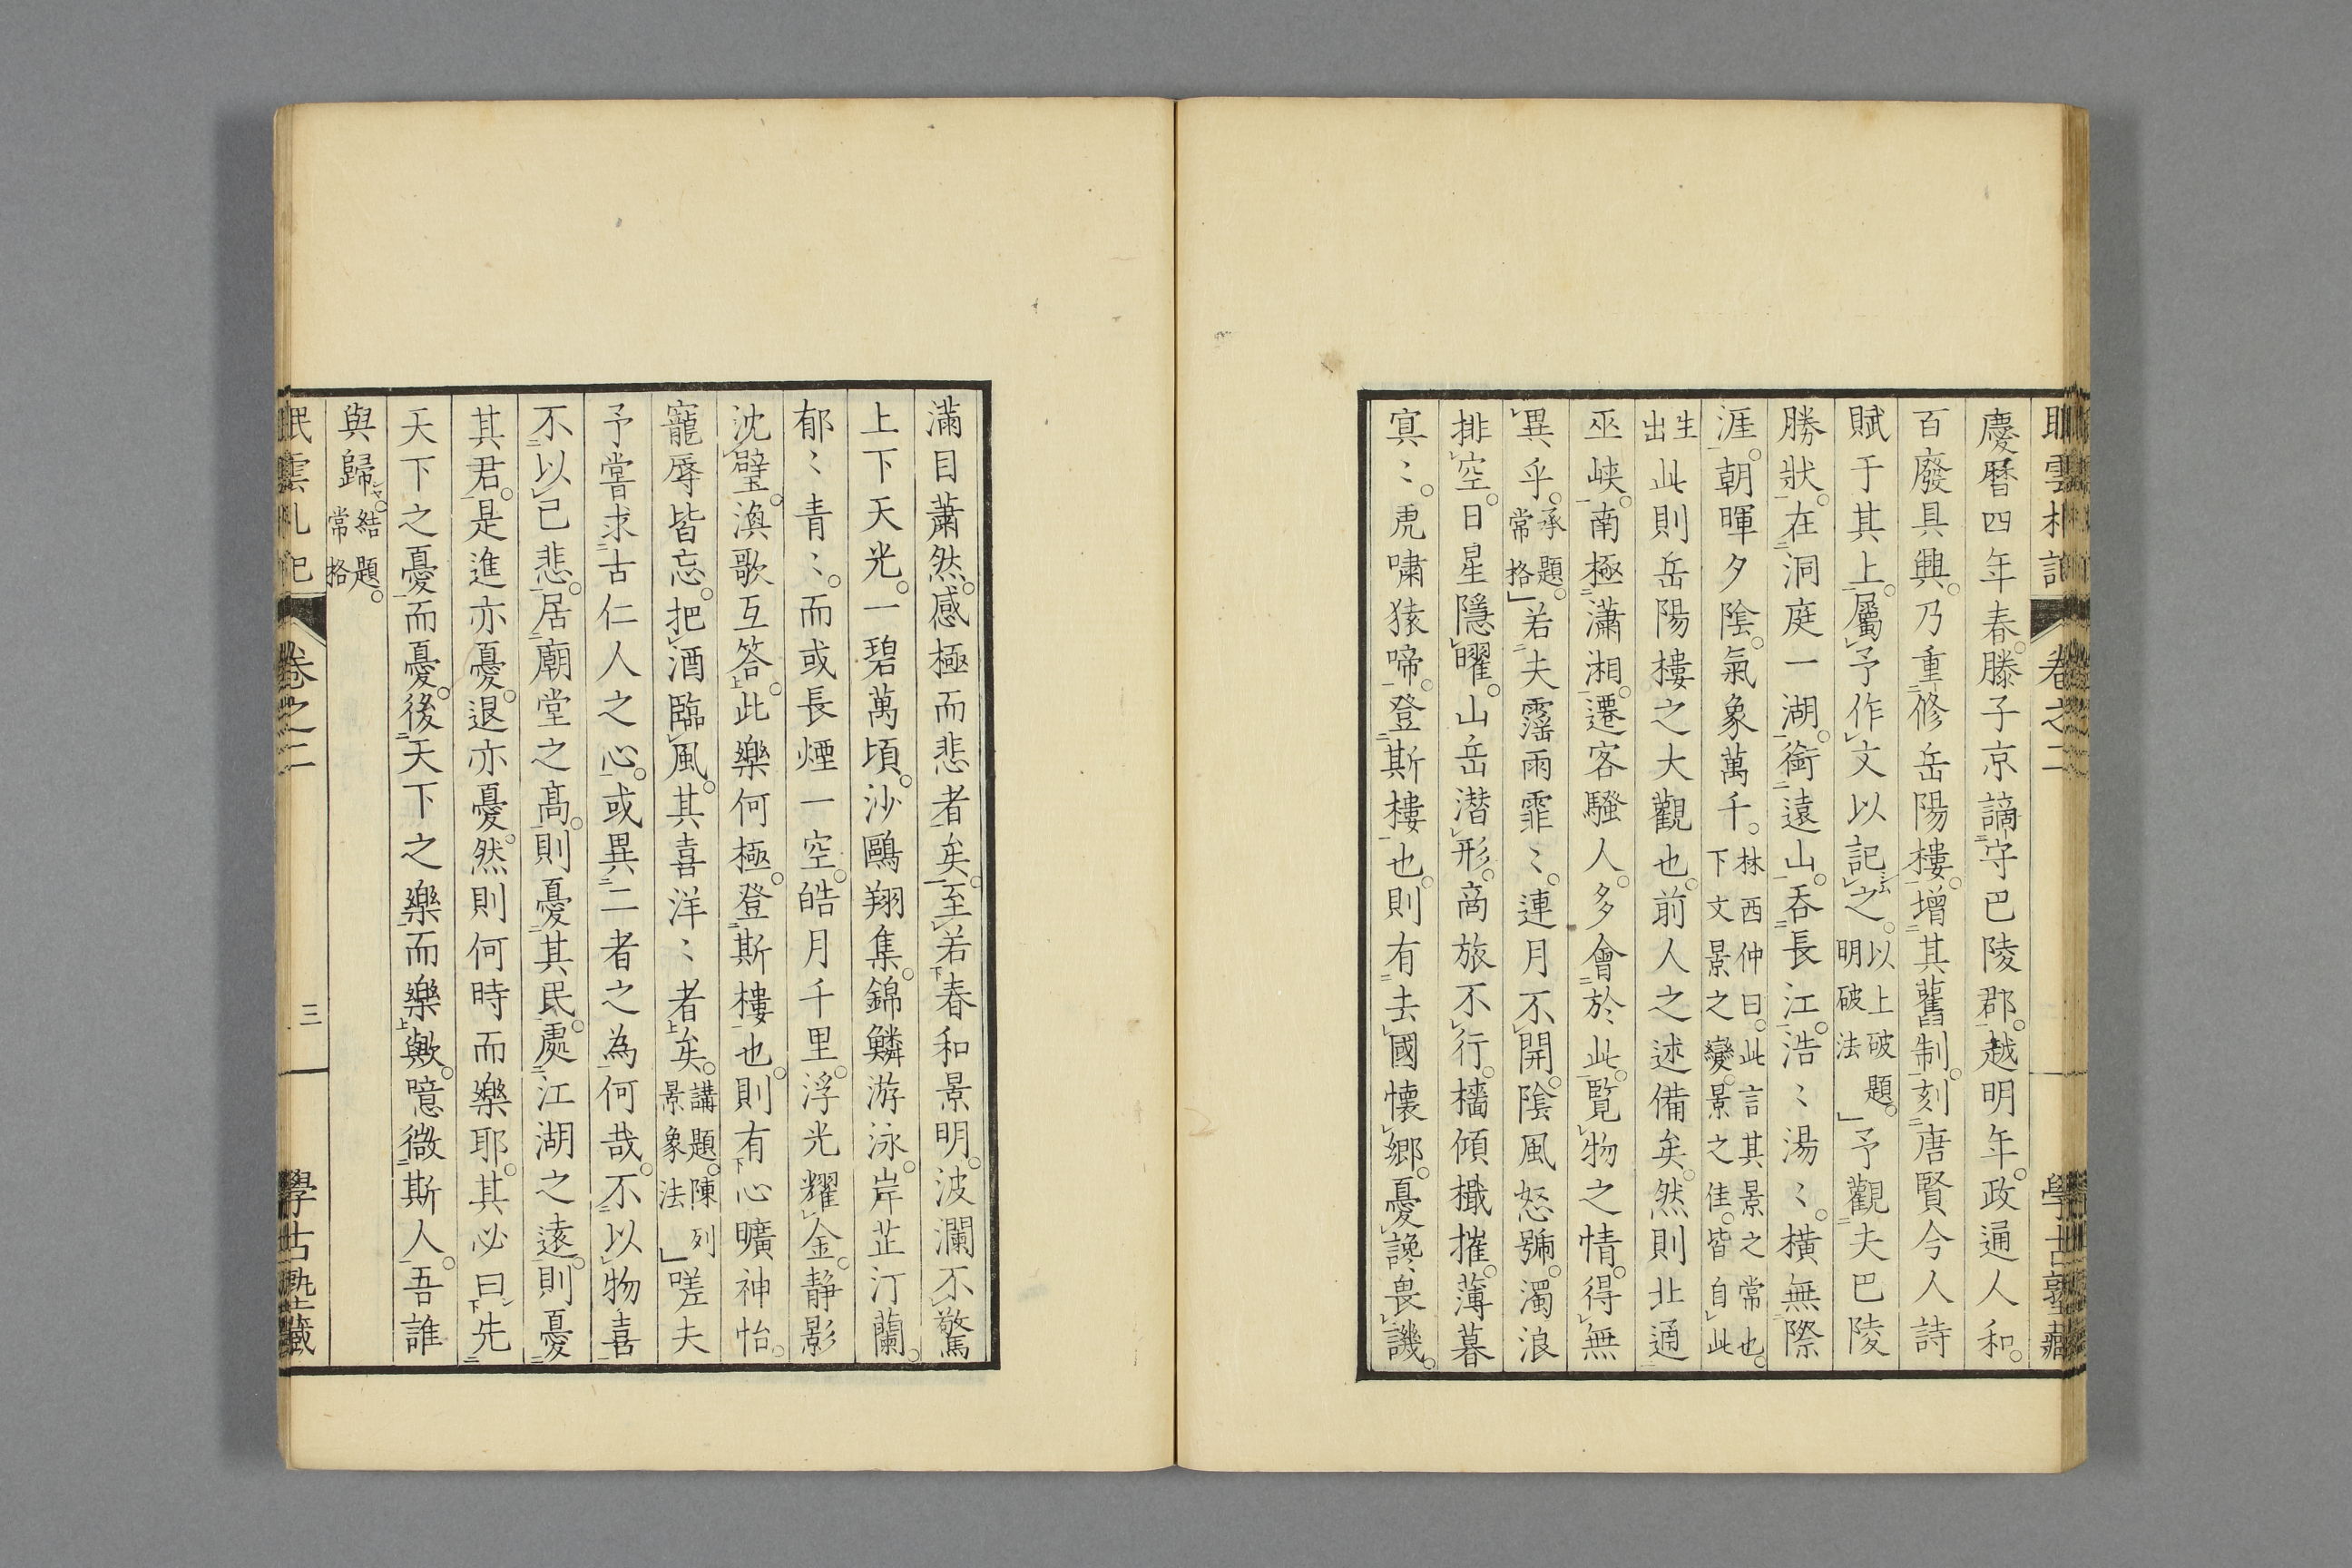 慶曆四年春。滕子京謫守巴陵郡。越明年。政通人和。
百廢具興。乃重修岳陽樓。增其舊制。刻唐賢今人詩
賦于其上。屬予作文以記之。以上破題。明破法」予觀夫巴陵
勝狀。在洞庭一湖。銜遠山。吞長江。浩〻湯〻。橫無際
涯。朝暉夕陰。氣象萬千。林西仲曰。此言其景之常也。下文景之變。景之佳。皆自此
生出此則岳陽樓之大觀也。前人之述備矣。然則北通
巫峽。南極瀟湘。遷客騷人。多會於此。覽物之情。得無
異乎。承題。常格」若夫霪雨霏〻。連月不開。陰風怒號。濁浪
排空。日星隱曜。山岳潛形。商旅不行。檣傾檝摧。薄暮
冥〻。虎嘯猿啼。登斯樓也。則有去國懷鄉。憂讒畏譏。
滿目蕭然。感極而悲者矣。至若春和景明。波瀾不驚
上下天光。一碧萬頃。沙鷗翔集。錦鱗游泳。岸芷汀蘭。
郁〻青〻。而或長煙一空。皓月千里。浮光耀金。靜影
沈璧。漁歌互答。此樂何極。登斯樓也。則有心曠神怡。
寵辱皆忘。把酒臨風。其喜洋〻者矣。講題。陳列景象法」嗟夫
予嘗求古仁人之心。或異二者之為何哉。不以物喜
不以己悲。居廟堂之高。則憂其民。處江湖之遠。則憂
其君。是進亦憂。退亦憂。然則何時而樂耶。其必曰先
天下之憂而憂。後天下之樂而樂歟。噫微斯人。吾誰
與歸。結題。常格
卷之二
三